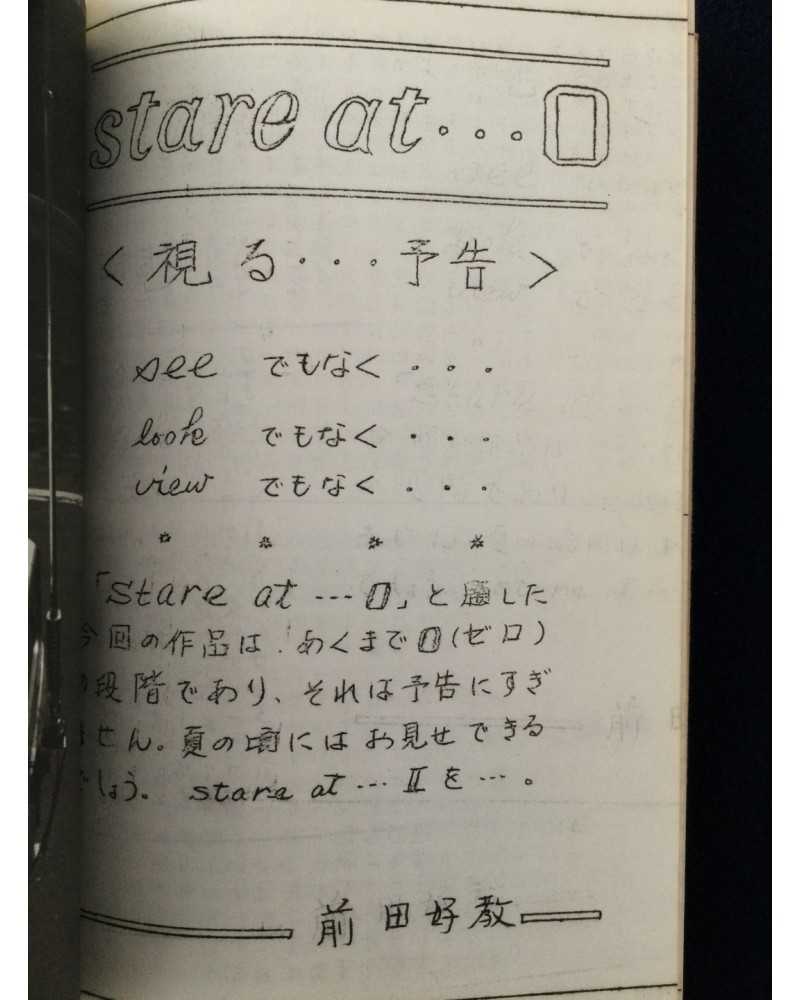 stare at・・・0
＜視る・・・予告＞
see でもなく・・・
look でもなく・・・
view でもなく・・・
* * * *
「stare at …0」と題した
今回の作品は、あくまで0(ゼロ)
の段階であり、それは予告にすぎ
ません。夏の頃にはお見せできる
でしょう。 stare at … Ⅱを…。
前田好教